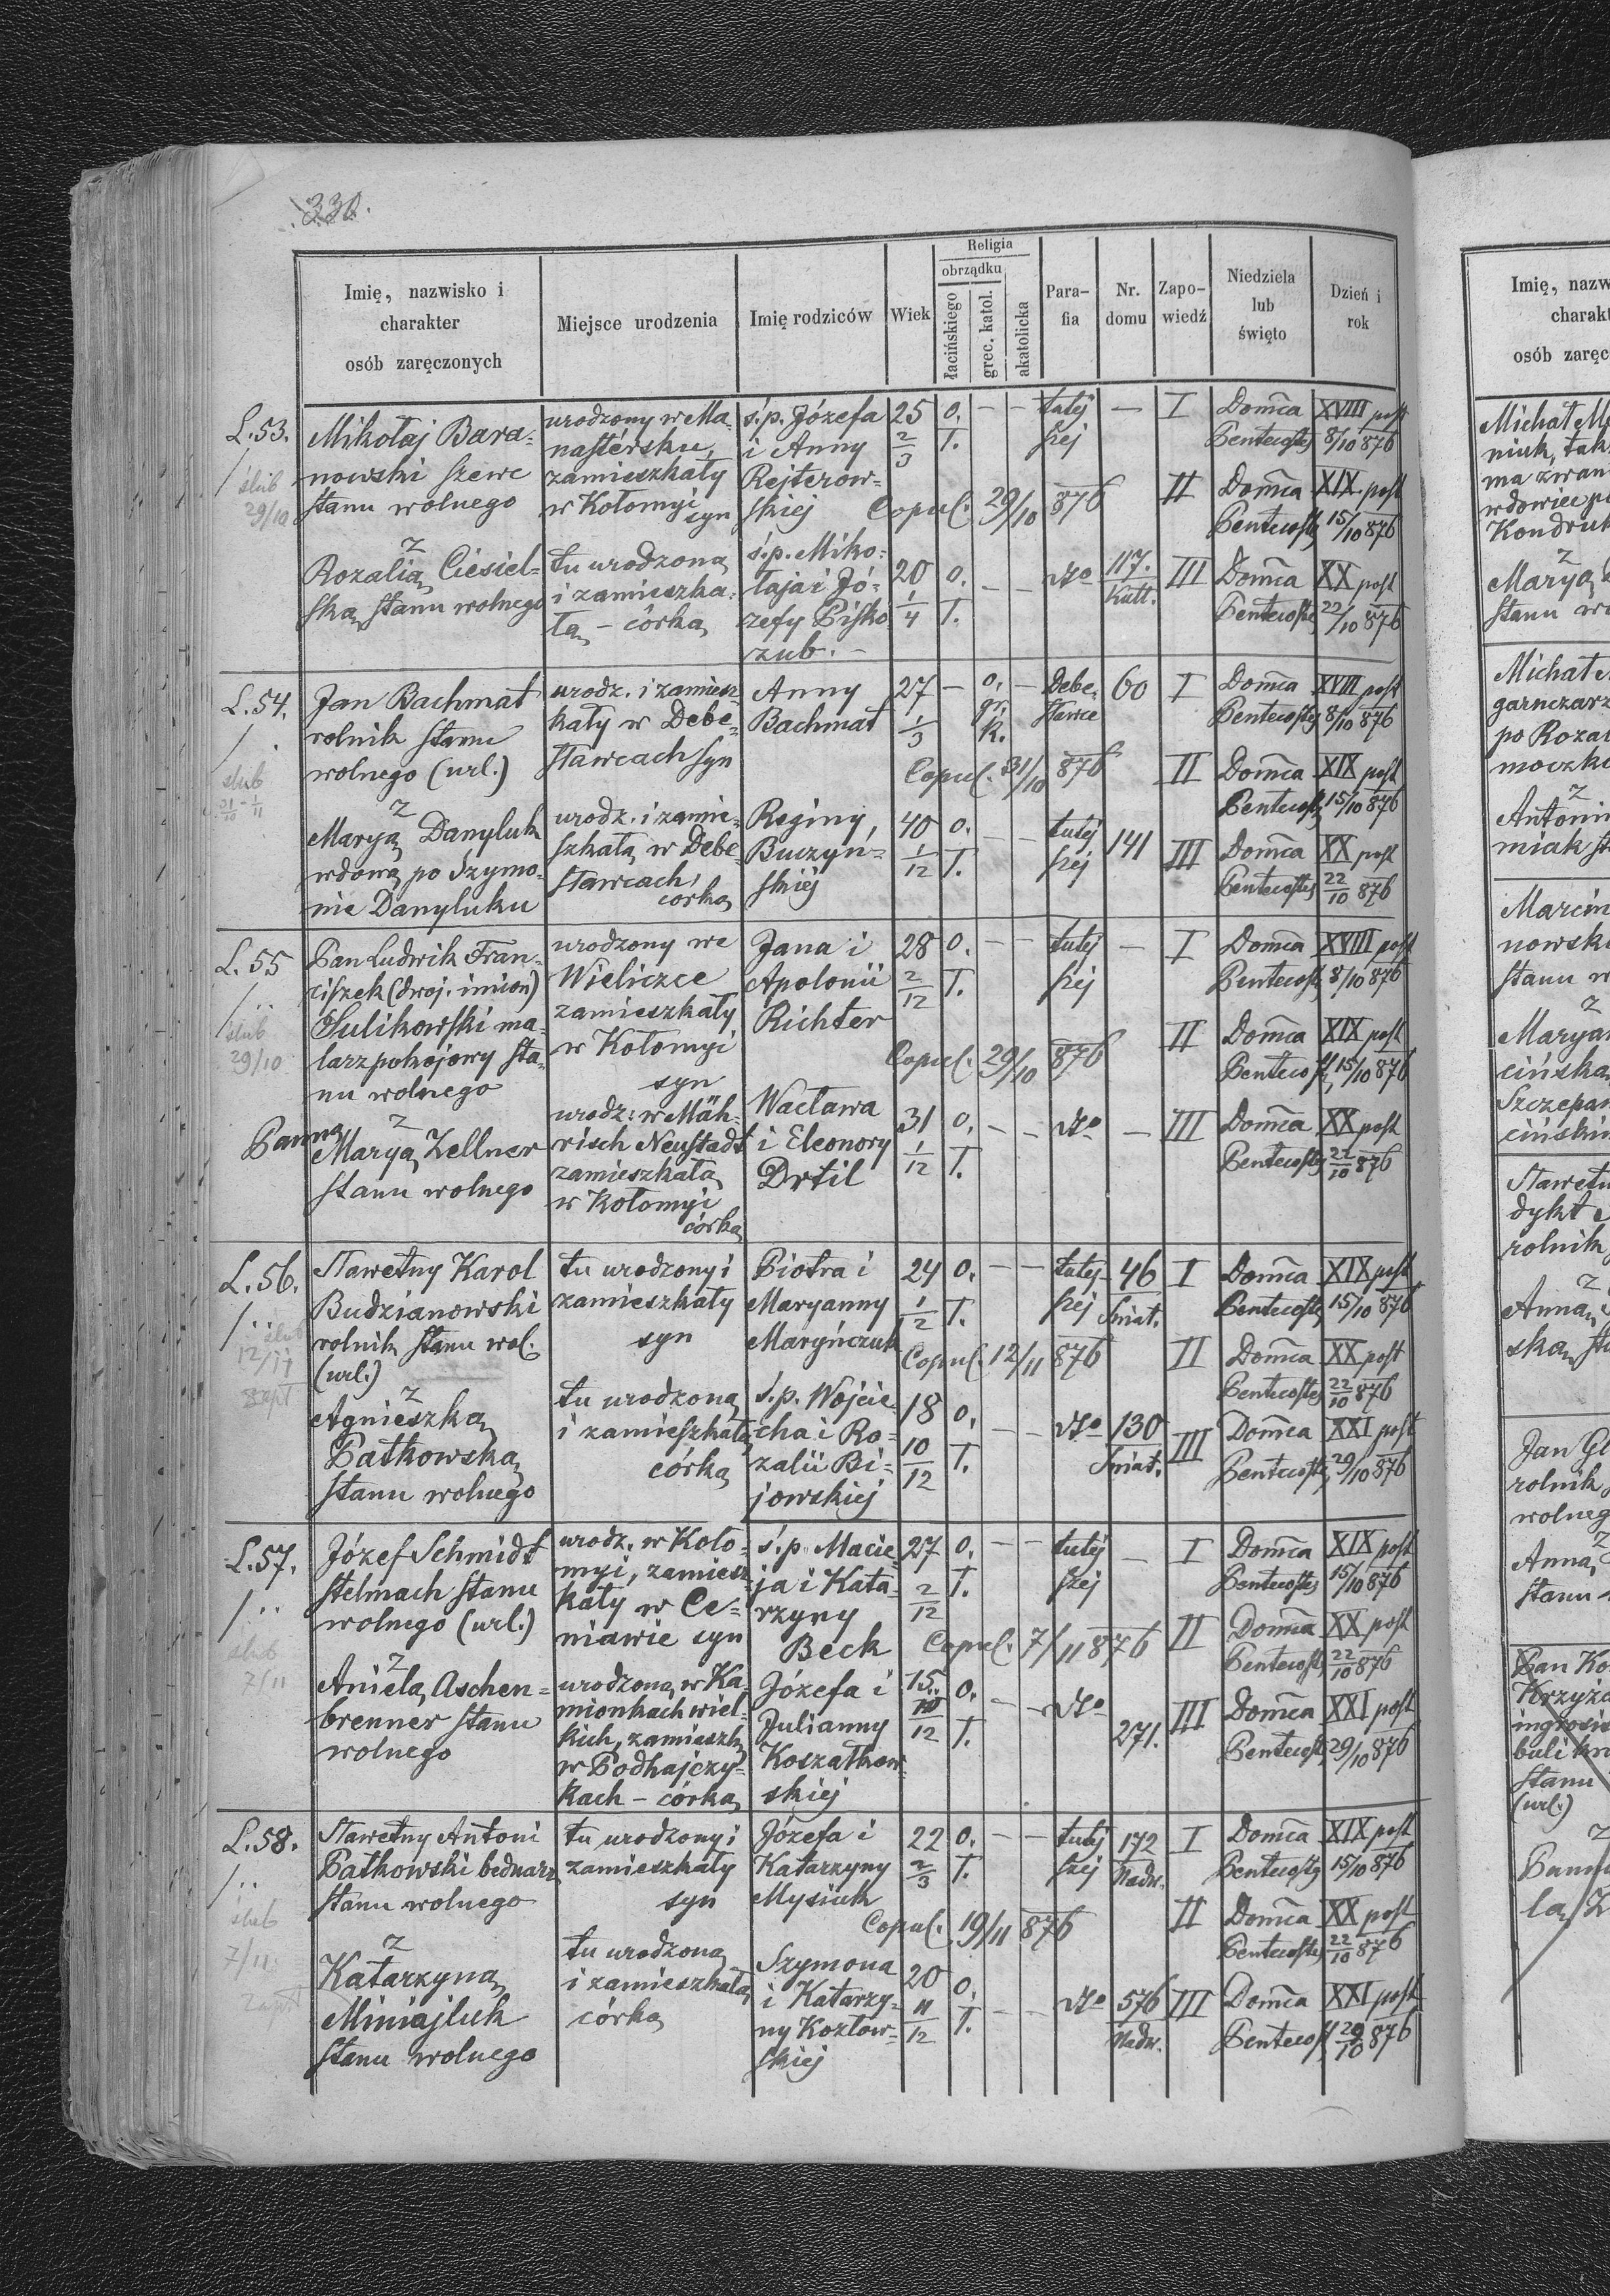 330.
Imię, nazwisko i charakter osób zaręczonych
Miejsce urodzenia
Imię rodziców
Wiek
Religia
obrządku
łacińskiego
grec. katol.
akatolicka
Para-fia
Nr. domu
Zapo-wiedź
Niedziela lub święto
Dzień i rok
L. 53.
ślub
29/10
Mikołaj Bara-
nowski szewc
stanu wolnego
urodzony w Ma-
nastersku,
zamieszkały
w Kołomyi
syn
ś.p. Józefa
i Anny
Rejterow-
skiej
25 2/3
o. ł.
— —
tutej
szej
—
Copul. 29/10 876
I Domca XVIII post
Pentecostes 8/10 876
II Domca XIX post
Pentecostes 15/10 876
z
Rozalią Ciesiel-
ską stanu wolnego
tu urodzoną
i zamieszka-
łą – córką
ś.p. Miko-
łaja i Jó-
zefy Pisko
zub. –
20 1/4
o. ł.
— —
dto
117.
Kutt.
III Domca XX post
Pentecostes 22/10 876
L. 54.
ślub
31/10 - 1/11
Jan Bachmat
rolnik stanu
wolnego (url.)
urodz. i zamiesz
kały w Debe-
sławcach syn
Anny
Bachmat
27 1/3
— o. gr. k. —
Debe-
sławce
60
Copul. 31/10 876
I Domca XVIII post
Pentecostes 8/10 876
II Domca XIX post
Pentecostes 15/10 876
z
Maryą Danyluk
wdową po Szymo-
nie Danyluku
urodz. i zamie-
szkałą w Debe-
sławcach,
córką
Reginy,
Buczyn-
skiéj
40 1/12
o. ł.
— —
tutej
szej
141
III Domca XX post
Pentecostes 22/10 876
L. 55
ślub
29/10
Pan Ludwik Fran-
ciszek (dwoj. imion)
Sulikowski ma-
larz pokojowy sta-
nu wolnego
urodzony we
Wieliczce
zamieszkały
w Kołomyi
syn
Jana i
Apolonii
Richter
28 2/12
o. ł.
— —
tutej
szej
—
Copul. 29/10 876
I Domca XVIII post
Pentecostes 8/10 876
II Domca XIX post
Pentecost 15/10 876
z
Panną
Maryą Zellner
stanu wolnego
urodz: w Mäh-
risch Neustadt
zamieszkałą
w Kołomyi
córką
Wacława
i Eleonory
Drtil
31 1/12
o. ł.
— —
dto
—
III Domca XX post
Pentecostes 22/10 876
L. 56.
ślub
12/11
Sławetny Karol
Budzianowski
rolnik stanu wol.
(url.)
tu urodzony i
zamieszkały
syn
Piotra i
Maryanny
Maryńczuk
24 1/12
o. ł.
— —
tutej-
szej
46
Śniat.
Copul. 12/11 876
I Domca XIX post
Pentecostes 15/10 876
II Domca XX post
Pentecostes 22/10 876
z
Agnieszką
Patkowską
stanu wolnego
tu urodzoną
i zamieszkałą
córką
ś.p. Wojcie-
cha i Ro-
zalii Bi-
jowskiej
18 10/12
o. ł.
— —
dto
130
Śniat.
III Domca XXI post
Pentecostes 29/10 876
L. 57.
ślub
7/11
Józef Schmidt
stelmach stanu
wolnego (url.)
urodz. w Koło-
myi, zamiesz
kały w Ce-
niawie syn
ś.p. Macie-
ja i Kata-
rzyny
Beck
27 2/12
o. ł.
— —
tutej
szej
—
Copul. 7/11 876
I Domca XIX post
Pentecostes 15/10 876
II Domca XX post
Pentecost 22/10 876
z
Anielą Aschen-
brenner stanu
wolnego
urodzoną w Ka-
mionkach wiel-
kich, zamieszk.
w Podhajczy-
kach – córką
Józefa i
Julianny
Koszałkow-
skiej
15 10/12
o. ł.
— —
dto
271.
III Domca XXI post
Pentecost 29/10 876
L. 58.
ślub
7/11
Sławetny Antoni
Patkowski bednarz
stanu wolnego
tu urodzony i
zamieszkały
syn
Józefa i
Katarzyny
Mysiuk
22 2/3
o. ł.
— —
tutej
szej
172
Nadw.
Copul. 19/11 876
I Domca XIX post
Pentecostes 15/10 876
II Domca XX post
Pentecostes 22/10 876
z
Katarzyną
Miniajluk
stanu wolnego
tu urodzoną
i zamieszkałą
córką
Szymona
i Katarzy-
ny Kozłow-
skiej
20 11/12
o. ł.
— —
dto
576
Nadw.
III Domca XXI post
Pentecost 29/10 876
Imię, nazw
charakt
osób zaręc
Michał M
niuk, tak
ma zwan
wdowiec po
Kondruk
z
Maryą
stanu wo
Michał
garncarz
po Rozal
moczko
z
Antonin
miak st
Marcin
nowski
stanu w
z
Maryan
cińską
Szczepan
cińskim
Sławetn
dykt
rolnik
z
Anną
ską st
Jan Gl
rolnik
wolneg
z
Anną
stanu
Pan Ko
Krzyża
ingrosis
buli kr
stanu
(url.)
z
Pann
lą Z